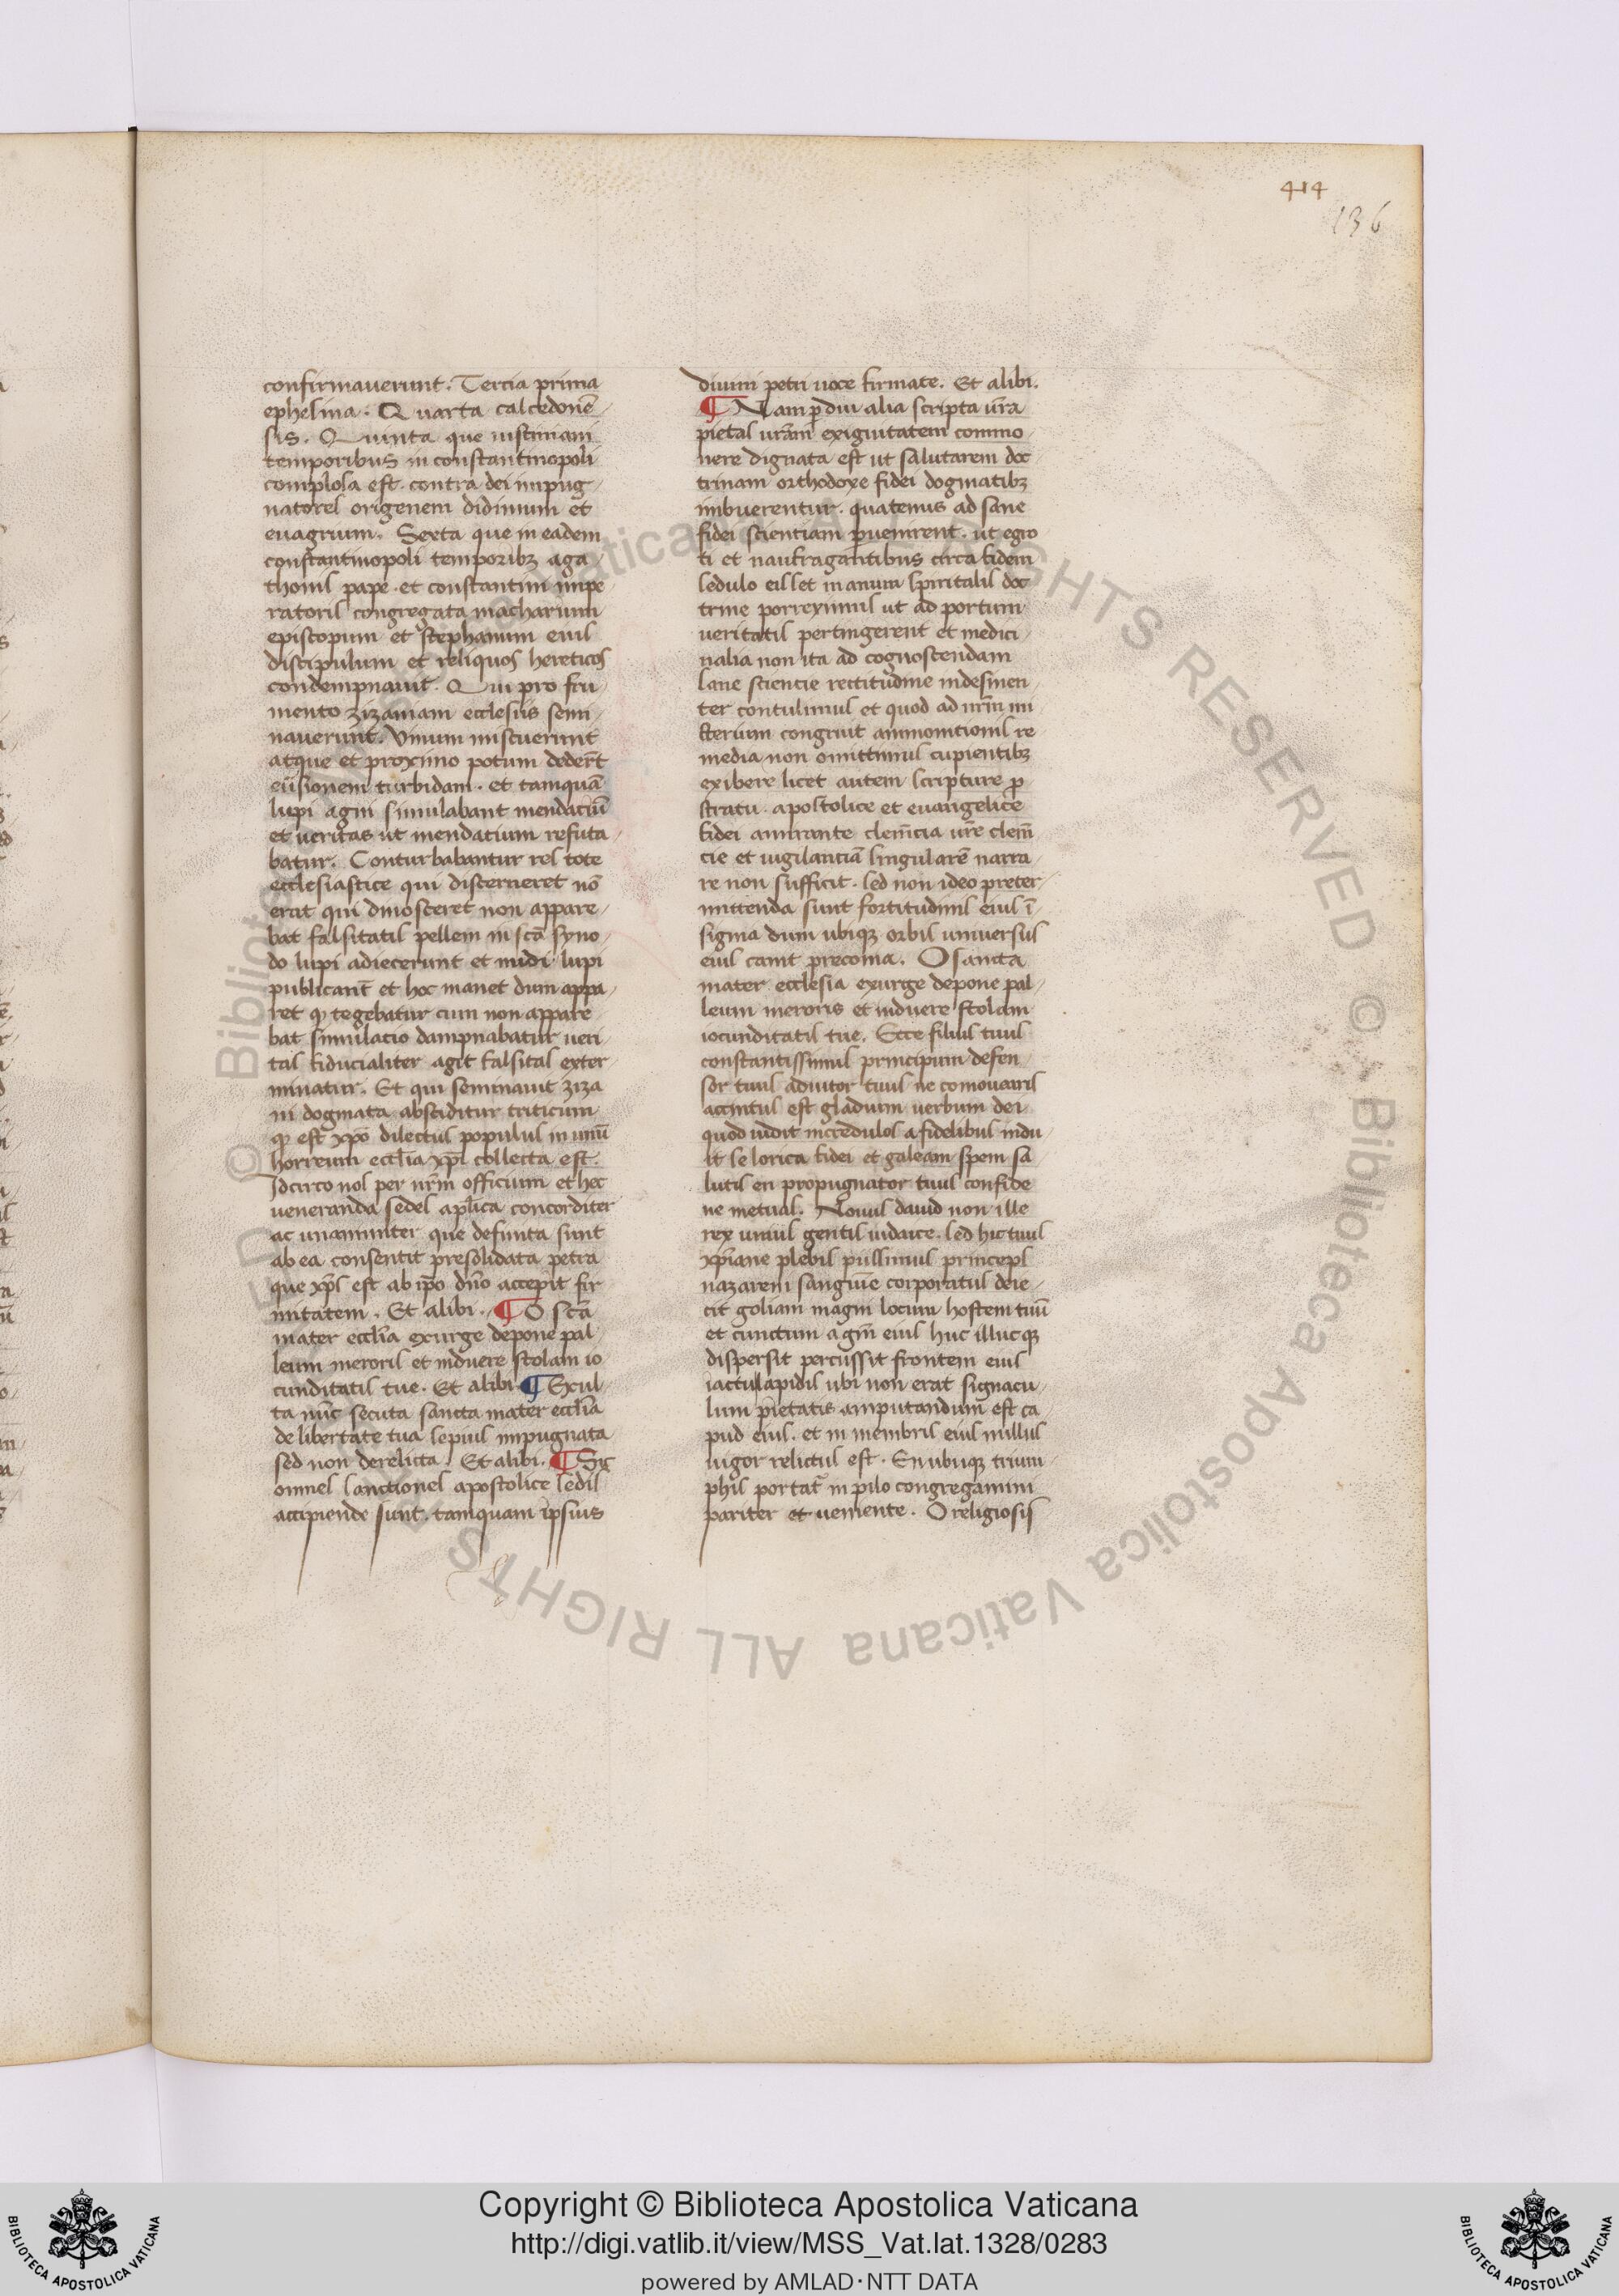 414
136
confirmauerunt. Tercia prima
ephesina. Quarta calcedonē
sis. Quinta que iustiniani
temporibus in constantinopoli
complosa est contra dei impug
natores origenem didimum et
euagrium. Sexta que in eadem
constantinopoli temporibꝫ aga
thonis pape et constantini impe
ratoris congregata macharium
episcopum et stephanum eius
discipulum et reliquos hereticos
condempnauit. Qui pro fru
mento zizaniam ecclesiis semi
nauerunt. Vinum miscuerunt
atque et proximo potum dederūt
euersionem turbidam et tamquā
lupi agni simulabant mendaciū
et ueritas ut mendatium refuta
batur. Conturbabantur res tote
ecclesiastice qui discerneret nō
erat qui dinosceret non appare
bat falsitatis pellem in scā syno
do lupi adiecerunt et nudi lupi
publicant̄ et hoc manet dum appa
ret qͥ tegebatur cum non appare
bat simulacio dampnabatur ueri
tas fiducialiter agit falsitas exter
minatur. Et qui seminauit ziza
ni dogmata absciditur triticum
qͥ est xp̄o dilectus populus in unū
horreum ecclīa xp̄i collecta est.
Idcirco nos per nr̄m officium et hec
ueneranda sedes apl̄ica concorditer
ac unanimiter que definita sunt
ab ea consentit presolidata petra
que xp̄s est ab ip̄o dn̄o accepit fir
mitatem. Et alibi. ¶ O scā
mater ecclīa exurge depone pal
leum meroris et induere stolam io
cunditatis tue. Et alibi ¶ Exul
ta nūc secuta sancta mater ecclīa
de libertate tua sepius impugnata
sed non derelicta. Et alibi. ¶ Sic
omnes sanctiones apostolice sedis
accipiende sunt. tamquam ipsius
diuini petri uoce firmate. Et alibi.
¶ Nam ꝑ diu alia scripta ur̄a
pietas uram̄ exiguitatem commo
nere dignata est ut salutarem doc
trinam orthodoxe fidei dogmatibꝫ
imbuerentur. quatenus ad sane
fidei scientiam ꝑuenirent. ut egro
ti et naufragantibus circa fidem
sedulo eis let manum spiritalis doc
trine porreximus ut ad portum
ueritatis pertingerent et medici
nalia non ita ad cognoscendam
sane scientie rectitudine indesinen
ter contulimus et quod ad nr̄m mi
sterium congruit ammonicionis re
media non omittimus cupientibꝫ
exibere licet autem scripture ꝑ
stratu apostolice et euangelice
fidei amirante clem̄cia ur̄e clem̄
cie et uigilanciā singularē narra
re non sufficit. sed non ideo preter
mittenda sunt fortitudinis eius ī
signia dum ubiqꝫ orbis uniuersus
eius canit preconia. O sancta
mater ecclesia exurge depone pal
leum meroris et induere stolam
iocunditatis tue. Ecce filius tuus
constantissimus principum defen
sor tuus adiutor tuus ne comouearis
accintus est gladium uerbum dei
quod uidit incredulos a fidelibus indu
it se lorica fidei et galeam spem sa
lutis en propugnator tuus confide
ne metuas. Nouus dauid non ille
rex unius gentis iudaice. sed hic tuus
xp̄iane plebis piissimus princeps
nazareni sanguīe corporatus deie
cit goliam magni locum hostem tuū
et cunctum agm̄ eius huc illucqꝫ
dispersit percussit frontem eius
iactu lapidis ubi non erat signacu
lum pietatis amputandum est ca
pud eius. et in membris eius nullus
uigor relictus est. En ubiqꝫ trium
phis portat̄ in pilo congregamini
pariter et uenite. O religiosis
© Biblioteca Apostolica Vaticana ALL RIGHTS RESERVED © Biblioteca Apostolica Vaticana ALL RIGHTS RESERVED
Copyright © Biblioteca Apostolica Vaticana
http://digi.vatlib.it/view/MSS_Vat.lat.1328/0283
powered by AMLAD·NTT DATA
BIBLIOTECA APOSTOLICA VATICANA
BIBLIOTECA APOSTOLICA VATICANA